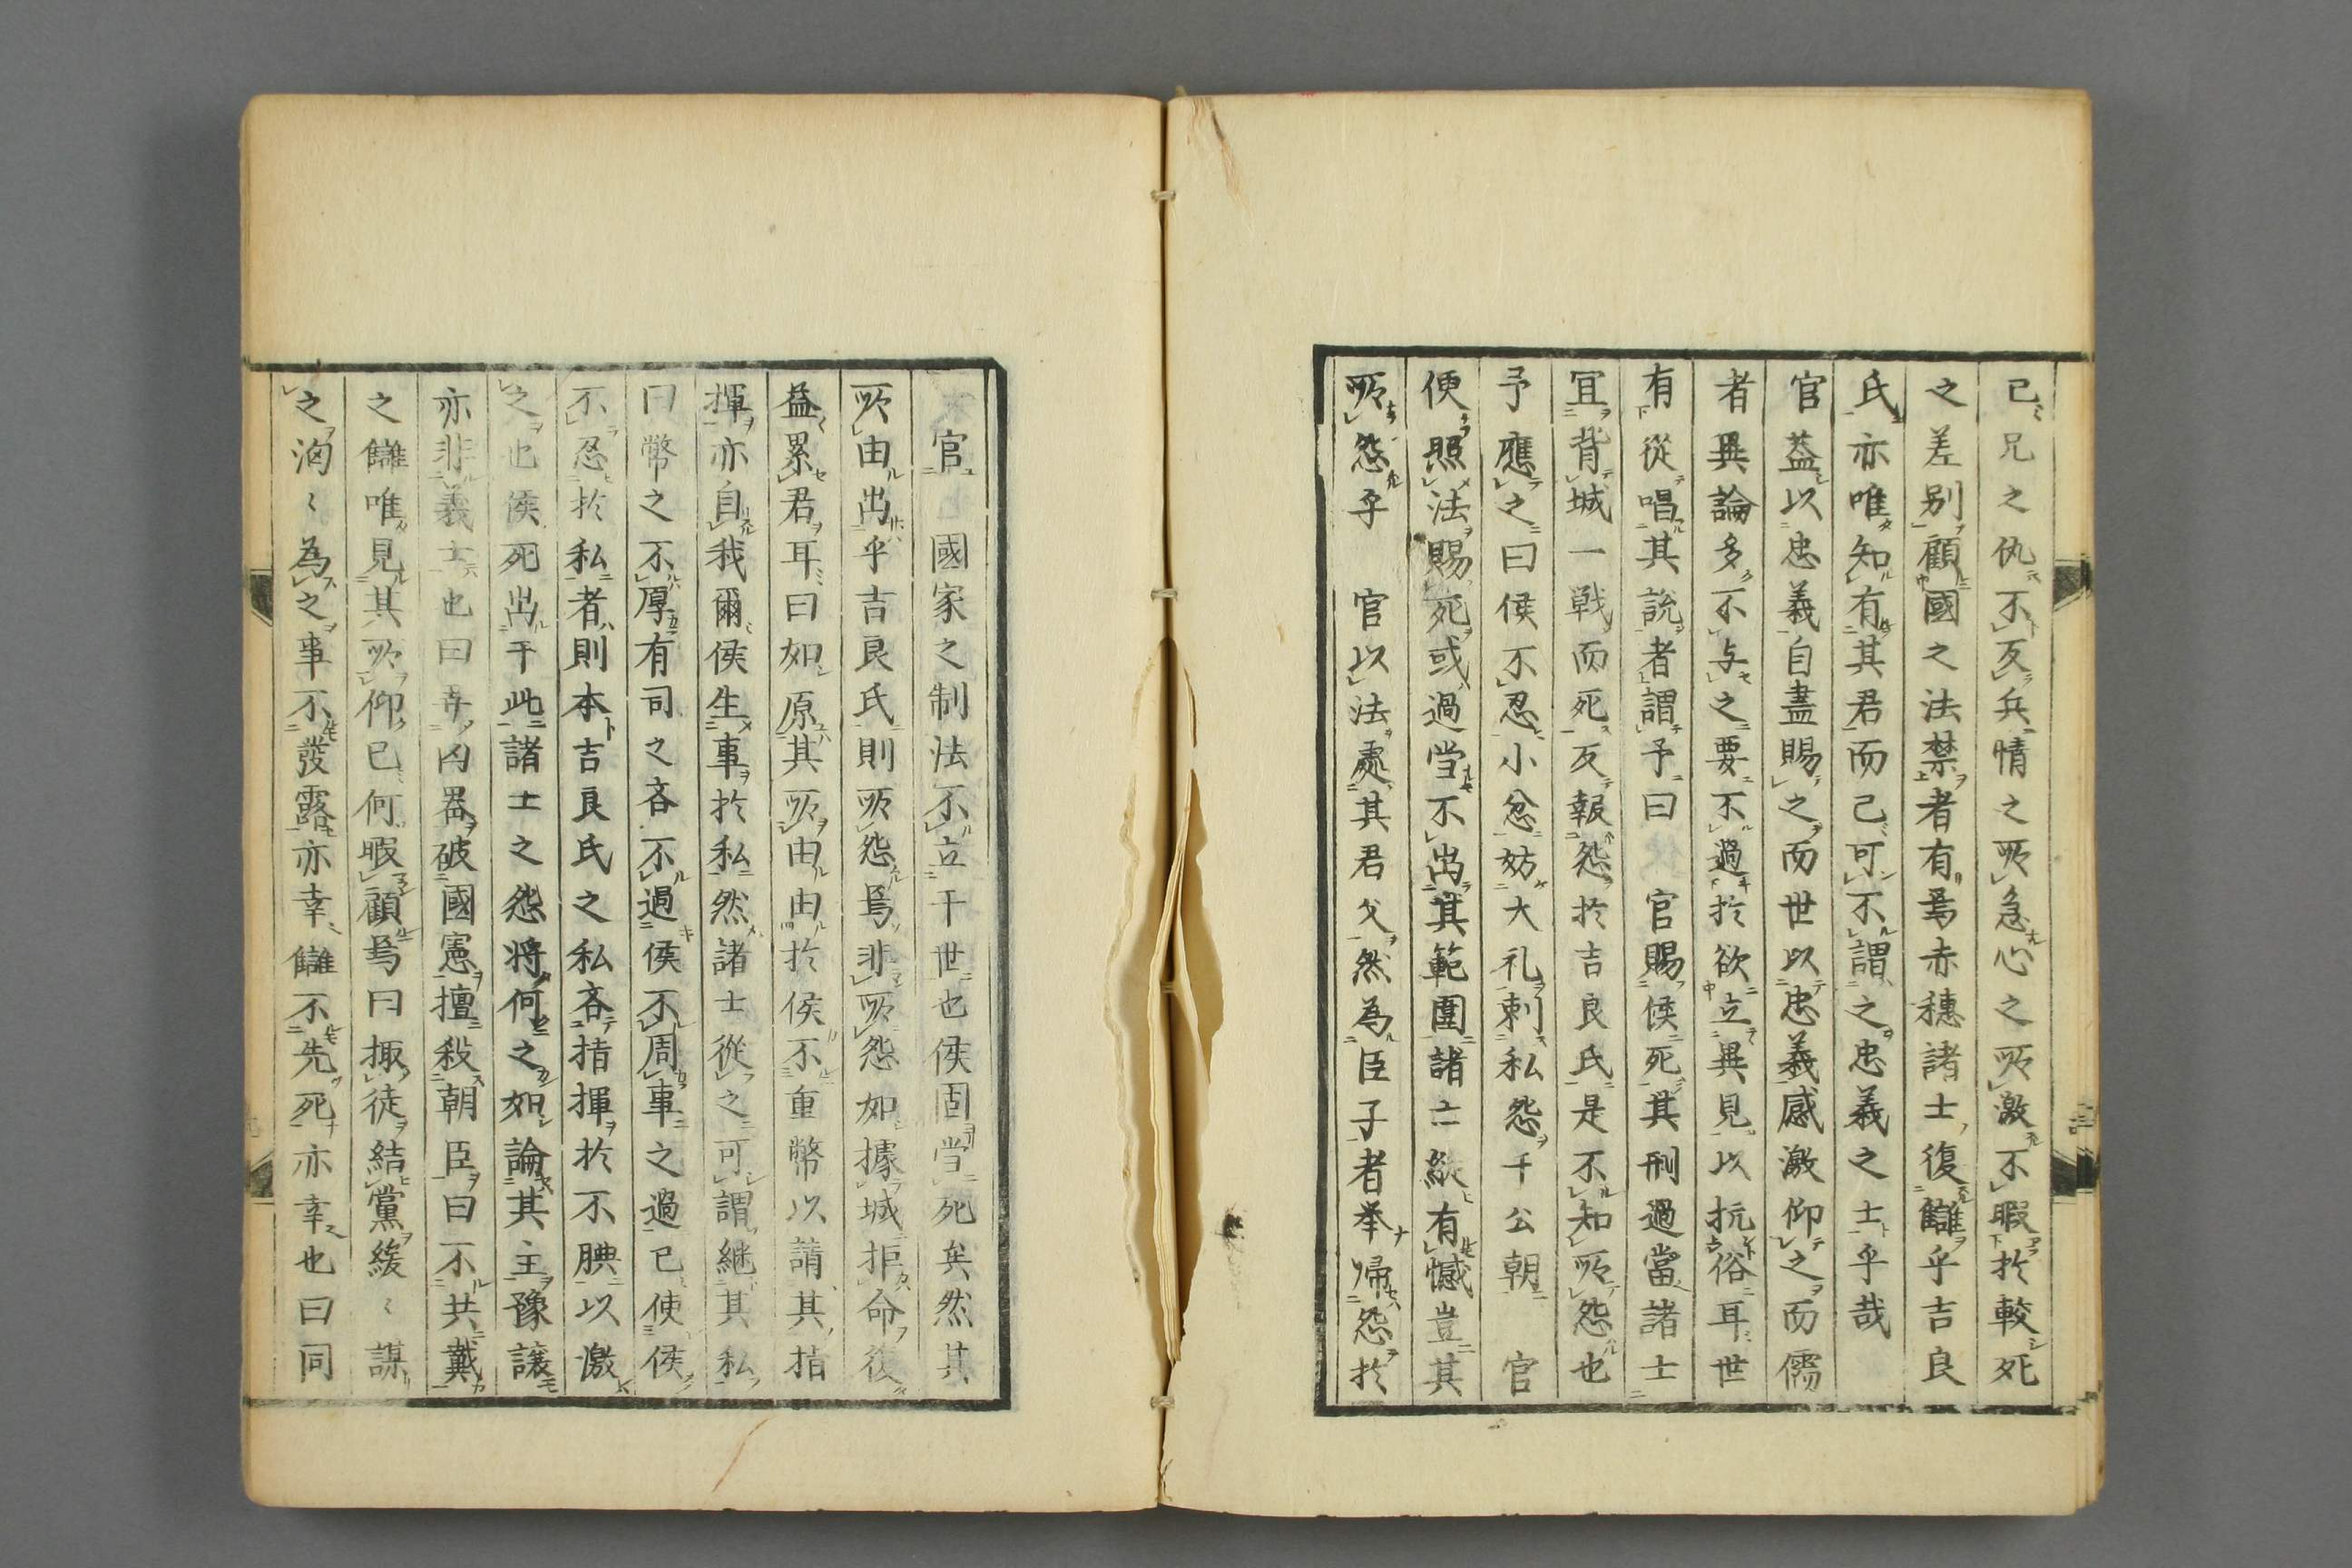 已兄之仇不反兵情之所急心之所激不暇於較死
之差別顧國之法禁者有焉赤穗諸士復讎乎吉良
氏亦唯知有其君而已可不謂之忠義之士乎哉
官蓋以忠義自盡賜之而世以忠義感激仰之而儒
者異論多不与之要不過於欲立異見以抗俗耳世
有從唱其説者謂予曰　官賜侯死其刑過當諸士
宜背城一戰而死反報怨於吉良氏是不知所怨也
予應之曰侯不忍小忿妨大礼刺私怨于公朝　官
便照法賜死或過當不出其範圍諸士縱有憾豈其
所怨乎　官以法處其君父然為臣子者举帰怨於
官　國家之制法不立于世也侯固當死矣然其
所由出乎吉良氏則所怨焉非所怨如據城拒命復
益累君耳曰如原其所由由於侯不重幣以請其指
揮亦自我爾侯生事於私然諸士從之可謂継其私
曰幣之不厚有司之吝不過侯不周事之過已使侯
不忍於私者則本吉良氏之私吝指揮於不腆以激
之也侯死出于此諸士之怨将何之如論其主豫讓
亦非義士也曰弄凶器破國憲擅殺朝臣曰不共戴
之讎唯見其所仰已何暇顧焉曰掫徒結黨緩〻謀
之洶〻為之事不發露亦幸讎不先死亦幸也曰同